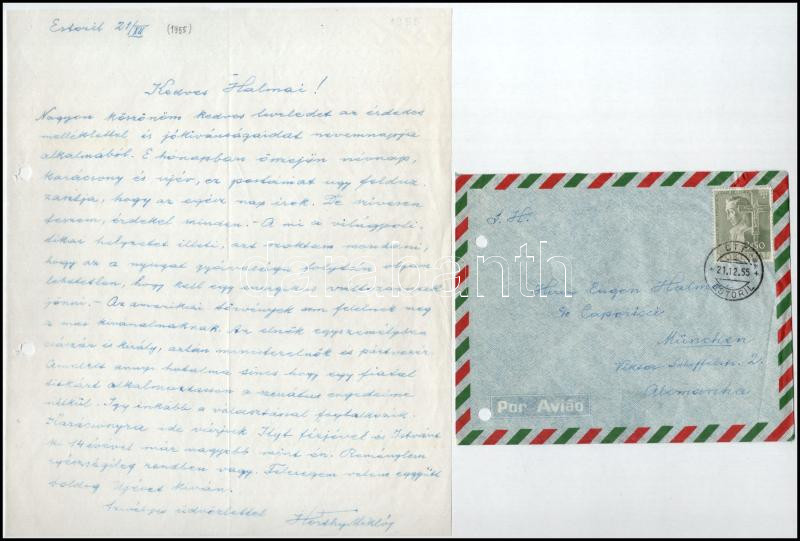 Estoril 21/XII (1955)
1955
Kedves Halmai!
Nagyon köszönöm kedves leveledet az érdekes
melléklettel, és jókívánságaidat nevemnapja
alkalmából. E hónapban ömöjön névnap,
karácsony és ujév, ez postámat ugy felduz-
zasztja, hogy az egész nap irok. De szivesen
teszem, érdekel minden. - A mi a világpoli-
tikai helyzetet illeti, azt szoktam mondani,
hogy az a nyugat gyávasága folytán olyan
lehetetlen, hogy kell egy energikus
jönni. - Az amerikai törvények sem felelnek meg
a mai kivánalmaknak. Az elnök egyszemélyben
császár és király, aztán miniszterelnök és pártvezér.
Amellett annyi hatalma sincs hogy egy fiatal
titkárt alkalmaztasson a szenátus engedelme
nélkül. Igy inkább a választással foglalkozik.
Karácsonyra ide várjuk Ilyt férjével és Istvánt
ki 14 évével már nagyobb mint én. Remélem
egészségileg rendben vagy. Feleségem velem együtt
boldog Ujévet kiván.
Szivélyes üdvözlettel Horthy Miklós
S. H.
2$50
21.12.55
ESTORIL
Herr Eugen Halmai
München
Viktor Scheffelstr. 2.
Alemanha
Par Avião
darabanth